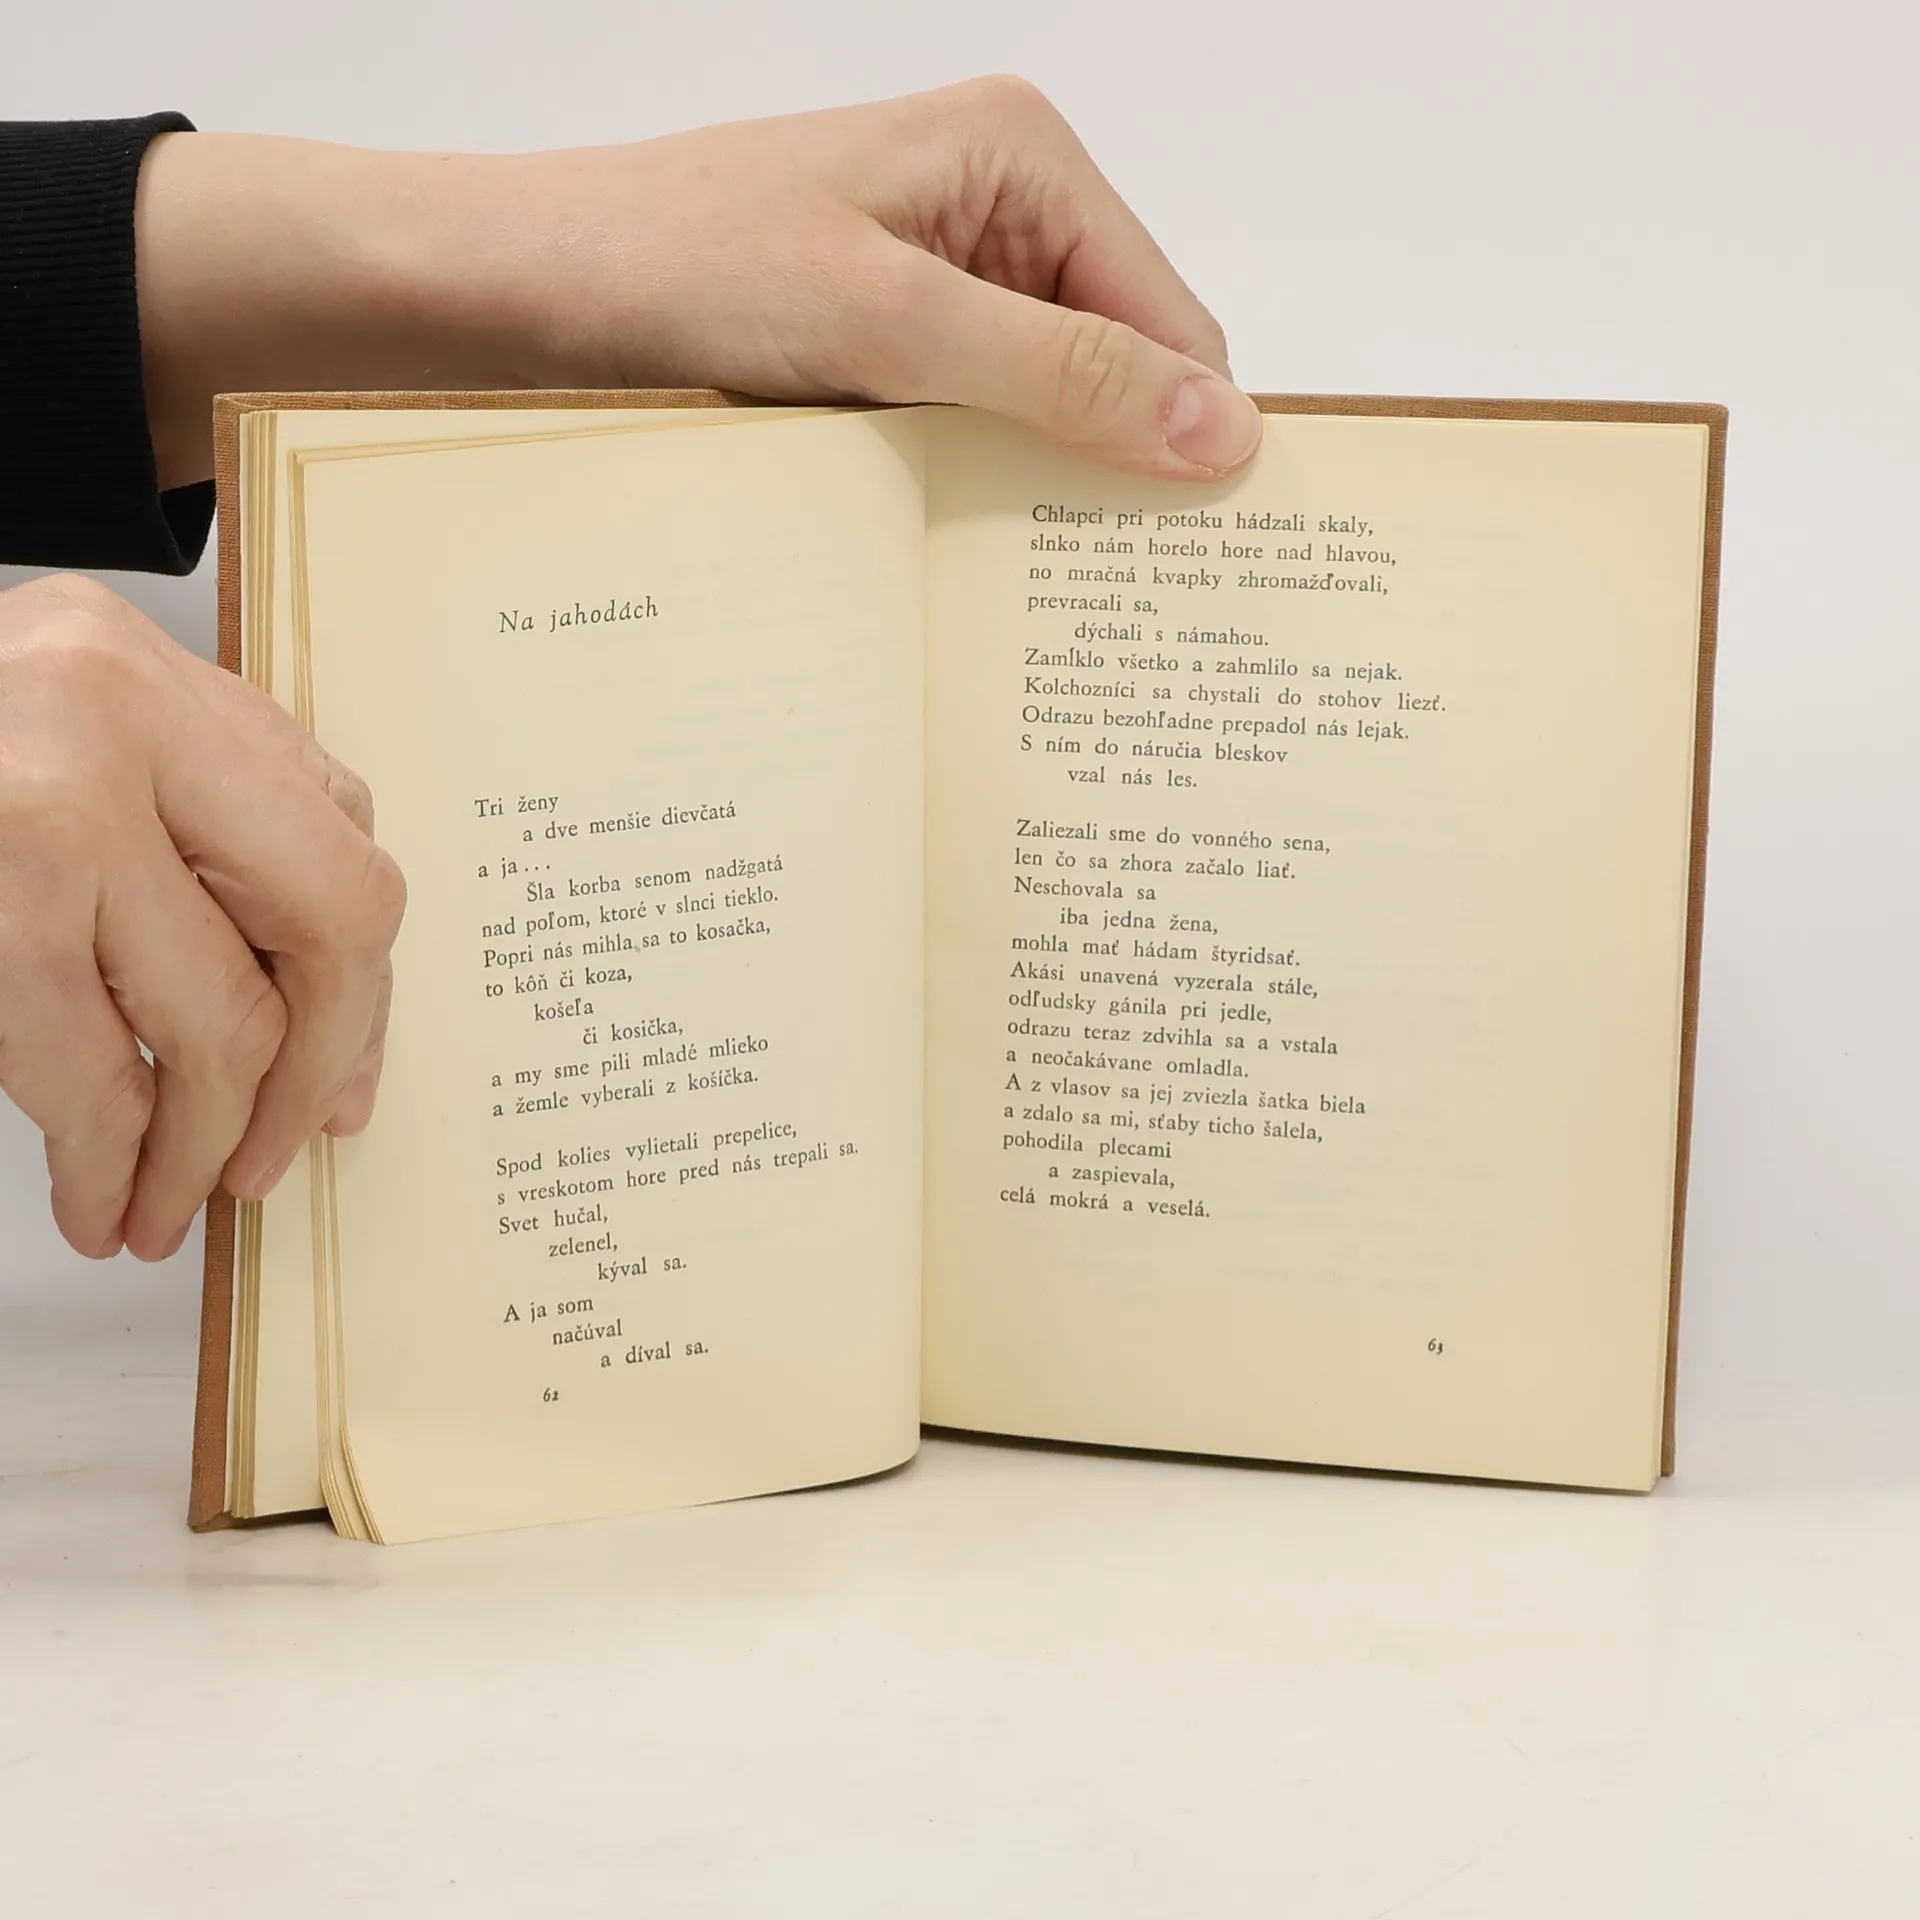 Na jahodách
Tri ženy
a dve menšie dievčatá
a ja...
Šla korba senom nadžgatá
nad poľom, ktoré v slnci tieklo.
Popri nás mihla sa to kosačka,
to kôň či koza,
košeľa
či kosička,
a my sme pili mladé mlieko
a žemle vyberali z košíčka.
Spod kolies vylietali prepelice,
s vreskotom hore pred nás trepali sa.
Svet hučal,
zelenel,
kýval sa.
A ja som
načúval
a díval sa.
62
Chlapci pri potoku hádzali skaly,
slnko nám horelo hore nad hlavou,
no mračná kvapky zhromažďovali,
prevracali sa,
dýchali s námahou.
Zamĺklo všetko a zahmlilo sa nejak.
Kolchozníci sa chystali do stohov liezť.
Odrazu bezohľadne prepadol nás lejak.
S ním do náručia bleskov
vzal nás les.
Zaliezali sme do vonného sena,
len čo sa zhora začalo liať.
Neschovala sa
iba jedna žena,
mohla mať hádam štyridsať.
Akási unavená vyzerala stále,
odľudsky gánila pri jedle,
odrazu teraz zdvihla sa a vstala
a neočakávane omladla.
A z vlasov sa jej zviezla šatka biela
a zdalo sa mi, sťaby ticho šalela,
pohodila plecami
a zaspievala,
celá mokrá a veselá.
63